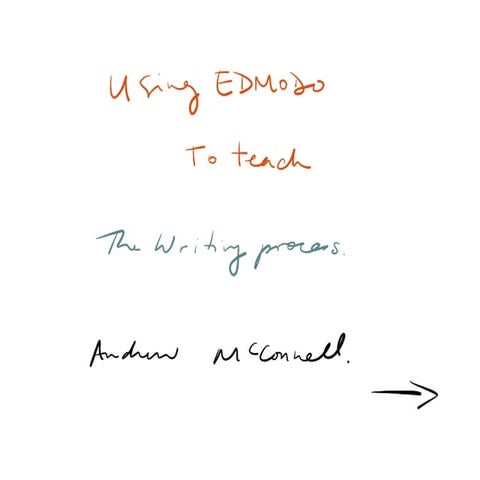 Using EDMODO
To teach
The Writing process.
Andrew McConnell.